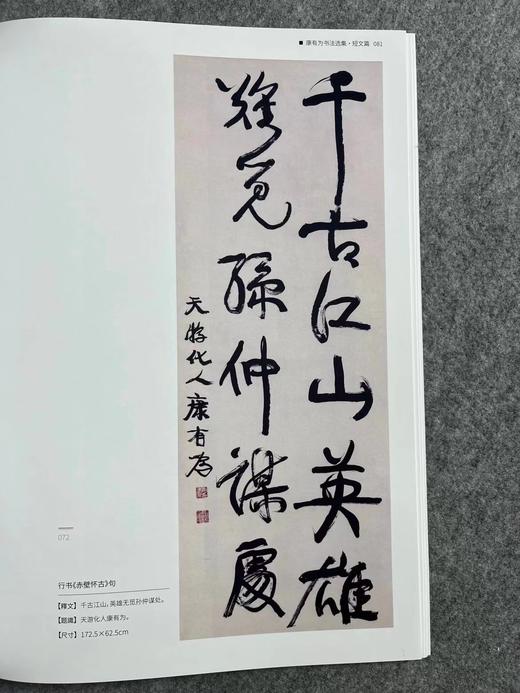 ■ 康有为书法选集・短文篇 081
千古江山英雄
難覓孫仲謀處
天游化人康有為
072
行书《赤壁怀古》句
【釋文】千古江山，英雄无觅孙仲谋处。
【题識】天游化人康有为。
【尺寸】172.5×62.5cm